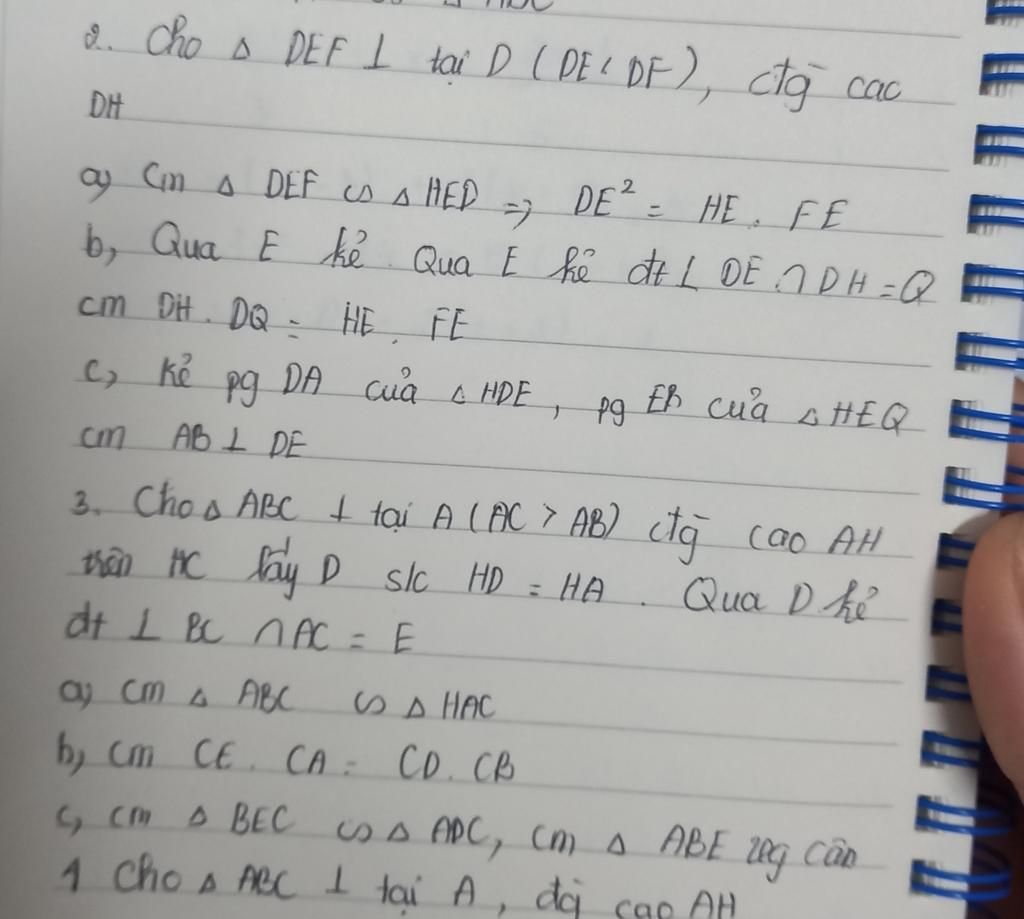 2. Cho Δ DEF ⊥ tại D (DE < DF), đg cao
DH
a, Cm Δ DEF ∽ Δ HED => DE² = HE. FE
b, Qua E kẻ Qua E kẻ đt ⊥ DE ∩ DH = Q
cm DH. DQ = HE. FE
c, Kẻ pg DA của Δ HDE, pg EB của Δ HEQ
cm AB ⊥ DE
3. Cho Δ ABC ⊥ tại A (AC > AB) đg cao AH
trên HC lấy D s/c HD = HA. Qua D kẻ
đt ⊥ BC ∩ AC = E
a, cm Δ ABC ∽ Δ HAC
b, cm CE. CA = CD. CB
c, cm Δ BEC ∽ Δ ADC, cm Δ ABE vg cân
1 Cho Δ ABC ⊥ tại A, đg cao AH